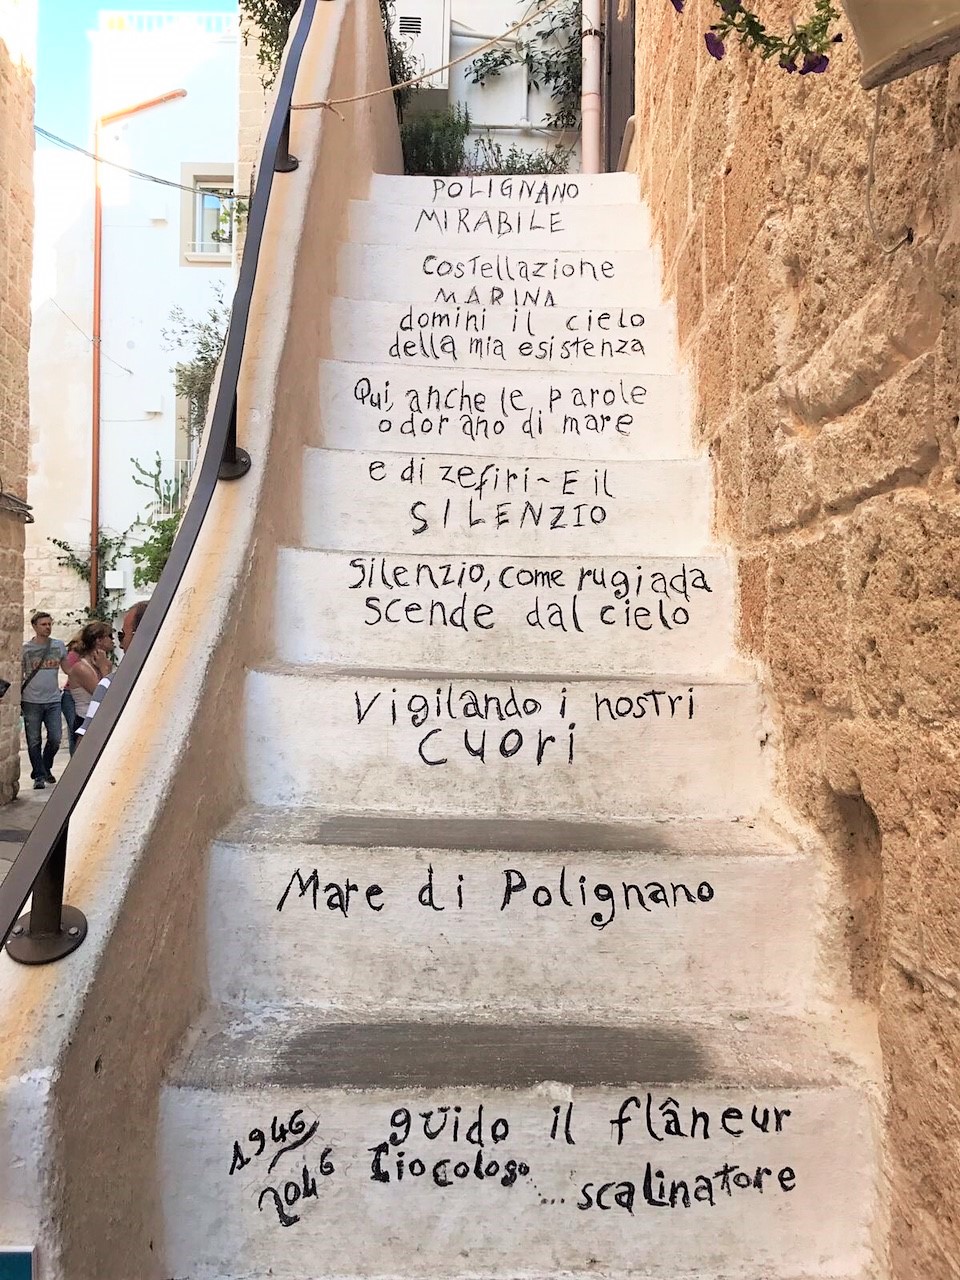 POLIGNANO
MIRABILE
Costellazione
MARINA
domini il cielo
della mia esistenza
Qui, anche le parole
odorano di mare
e di zefiri~ E il
SILENZIO
Silenzio, come rugiada
scende dal cielo
Vigilando i nostri
cuori
Mare di Polignano
1946
2046
guido il flâneur
Giocologo
...scalinatore